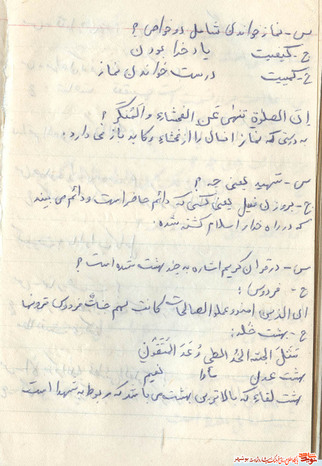 س - نماز خواندن شامل دو خواص؟
ج - کیفیت یاد خدا بودن
ج - کمیت درست خواندن نماز
ان الصلوة تنهی عن الفحشاء و المنکر؟
به درستی که نماز انسان را از فحشاء و
س - شهید یعنی چه؟
ج - بروزن فعیل یعنی کسی که دائم حاضر است و دائم می بیند
که در راه خدا و اسلام کشته شده.
س - در قرآن کریم اشاره به چند بهشت شده است؟
ج - فردوس:
ان الذین امنوا و عملو الصالحات کانت لهم جنات فردوس نزولا
ج - بهشت خلد:
الخلد التی وعد المتقون
بهشت عدل نعیم
بهشت لقاء که بالاترین بهشت می باشد که مربوط به شهدا است